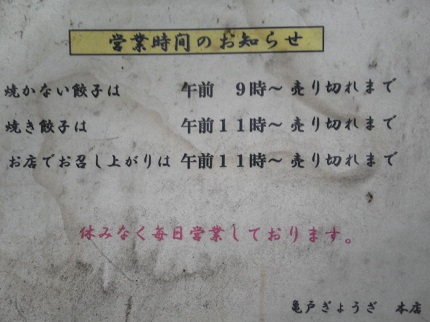 営業時間のお知らせ
焼かない餃子は 午前 9時～売り切れまで
焼き餃子は 午前11時～売り切れまで
お店でお召し上がりは 午前11時～売り切れまで
休みなく毎日営業しております。
亀戸ぎょうざ 本店